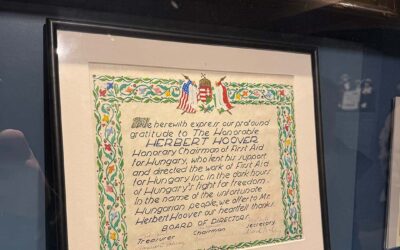 We herewith express our profound
gratitude to The Honorable
HERBERT HOOVER
Honorary Chairman of First Aid
for Hungary, who lent his support
and directed the work of First Aid
for Hungary Inc. in the dark hours
of Hungary's fight for freedom.
In the name of the unfortunate
Hungarian people, we offer to Mr.
Herbert Hoover our heartfelt thanks.
BOARD OF DIRECTORS
Treasurer Chairman Secretary